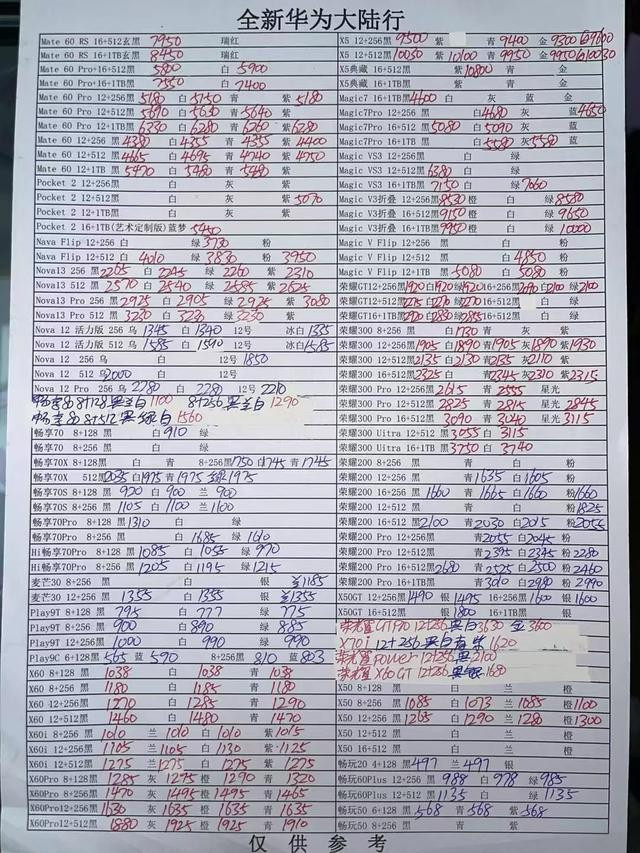 全新华为大陆行
Mate 60 RS 16+512玄黑 7950 瑞红
Mate 60 RS 16+1TB玄黑 8450 瑞红
Mate 60 Pro+16+512黑 5800 白 5900
Mate 60 Pro+16+1TB黑 7550 7400
Mate 60 Pro 12+256黑 5180 白 5150 青 紫 5180
Mate 60 Pro 12+512黑 5690 白 5630 青 5640 紫
Mate 60 Pro 12+1TB黑 6330 白 6280 青 6260 紫 6280
Mate 60 12+256 黑 4380 白 4355 青 4355 紫 4400
Mate 60 12+512 黑 4665 白 4695 青 4740 紫 4750
Mate 60 16+1TB 黑 5470 白 5480 青 5480 紫
Pocket 2 12+256黑 白 灰 紫
Pocket 2 12+512黑 白 灰 紫 5070
Pocket 2 12+1TB黑 白 灰 紫
Pocket 2 16+1TB(艺术定制版)蓝梦 5450
Nava Flip 12+256 白 绿 3730 粉
Nava Flip 12+512 白 4010 绿 3830 粉 3950
Nova13 256 黑 2265 白 2245 绿 2260 紫 2310
Nova13 512 黑 2570 白 2540 绿 2585 紫 2625
Nova13 Pro 256 黑 2925 白 2905 绿 2925 紫 3080
Nova13 Pro 512 黑 3230 白 3230 绿 3230 紫
Nova 12 活力版 256 乌 1345 白 1340 12号 冰白 1335
Nova 12 活力版 512 乌 1585 白 1590 12号 冰白 1585
Nova 12 256 乌 白 12号 1850
Nova 12 512 乌 2000 白 12号
Nova 12 Pro 256 乌 2280 白 2280 12号 2210
畅享80 8+128 黑金白 1100 8+256 黑金白 1290
畅享80 8+512 黑绿白 1560
畅享70 8+128 黑 白 910 绿
畅享70 8+256 黑 白 绿
畅享70X 8+128黑 白 青 8+256黑 1750 白 1745 青 1745
畅享70X 512黑 2035 白 1975 青 1975 绿 1975
畅享70S 8+128 黑 920 白 900 兰 900
畅享70S 8+256 黑 1105 白 1100 兰 1100
畅享70Pro 8+128黑 1310 白 绿
畅享70Pro 8+256黑 白 1685 绿 1610
Hi畅享70Pro 8+128黑 1085 白 1055 绿 970
Hi畅享70Pro 8+256黑 1205 白 1195 绿 1215
麦芒30 8+256 黑 白 银 兰 1185
麦芒30 12+256 黑 1355 白 1355 银 兰 1355
Play9T 8+128 黑 795 白 777 绿 775
Play9T 8+256 黑 900 白 890 绿 885
Play9T 12+256 黑 1000 白 990 绿 990
Play9C 6+128黑 565 蓝 590 8+256黑 810 蓝 803
X60 8+128 黑 1038 白 1038 青 1038
X60 8+256 黑 1180 白 1185 青 1180
X60 12+256 黑 1270 白 1285 青 1290
X60 12+512 黑 1460 白 1480 青 1470
X60i 8+256 黑 1010 兰 1010 白 1010 紫 1015
X60i 12+256 黑 1105 兰 1105 白 1130 紫 1125
X60i 12+512 黑 1275 兰 1275 白 1275 紫 1275
X60Pro 8+128黑 1285 灰 1275 橙 1290 青 1320
X60Pro 8+256黑 1470 灰 1495 橙 1495 青 1465
X60Pro12+256黑 1630 灰 1635 橙 1635 青 1635
X60Pro12+512黑 1880 灰 1925 橙 1925 青 1910
X5 12+256黑 9500 紫 青 9400 金 9300
X5 12+512黑 10050 紫 10100 青 9950 金 9950
X5典藏 16+512黑 紫 10800 青 金
X5典藏 16+1TB黑 紫 青 金
Magic7 16+1TB黑 4600 白 灰 蓝
Magic7Pro 12+256 黑 白 4680 灰 蓝 4650
Magic7Pro 16+512 黑 5080 白 5090 灰 蓝
Magic7Pro 16+1TB 黑 白 5580 灰 5580 蓝
Magic VS3 12+256黑 白 绿
Magic VS3 12+512黑 6380 白 绿
Magic VS3 16+1TB黑 7150 白 绿 7060
Magic V3折叠 12+256黑 8530 橙 白 绿 8580
Magic V3折叠 16+512黑 9150 橙 白 绿 9650
Magic V3折叠 16+1TB黑 9950 橙 白 绿 10000
Magic V Flip 12+256 黑 白 粉
Magic V Flip 12+512 黑 白 4850 粉
Magic V Flip 16+1TB 黑 5080 白 5080 粉
荣耀300 8+256 黑 白 1730 青 灰 紫
荣耀300 12+256黑 1905 白 1890 青 1905 灰 1890 紫 1930
荣耀300 12+512黑 2135 白 2130 青 2135 灰 2110 紫
荣耀300 16+512黑 2325 白 青 2345 灰 2310 紫 2315
荣耀300 Pro 12+256黑 2615 青 2555 星光
荣耀300 Pro 12+512黑 2825 青 2815 星光 2845
荣耀300 Pro 16+512黑 3090 青 3040 星光 3115
荣耀300 Uitra 12+512黑 3055 白 3115
荣耀300 Uitra 16+1TB黑 3750 白 3740
荣耀200 8+256 黑 青 白 粉
荣耀200 12+256 黑 青 1635 白 1605 粉
荣耀200 16+256 黑 1660 青 1665 白 1660 粉 1660
荣耀200 12+512 黑 青 白 粉 1825
荣耀200 16+512 黑 2100 青 2030 白 2015 粉 2055
荣耀200 Pro 12+256黑 青 2055 白 2045 粉
荣耀200 Pro 12+512黑 青 2395 白 2345 粉 2280
荣耀200 Pro 16+512黑 2680 青 2525 白 2500 粉 2460
荣耀200 Pro 16+1TB黑 青 3010 白 2980 粉 2990
X50GT 12+256黑 1490 银 1495 16+256黑 1600 银 1600
X50GT 16+512黑 银 1800 16+1TB黑 银
荣耀GT Pro 12+256 黑白 3630 金 3600
X70i 12+256 黑白青紫 1620
荣耀Power 12+256 黑 2100
荣耀X60GT 12+256 黑银 1680
X50 8+128 黑 白 兰 橙
X50 8+256 黑 1085 白 1073 兰 1085 橙 1100
X50 12+256 黑 1265 白 1290 兰 1280 橙 1300
X50 12+512 黑 白 兰 橙
X50 16+512 黑 白 兰 橙
畅玩20 4+128黑 497 兰 497 银
畅玩60Plus 12+256黑 988 白 978 绿 985
畅玩60Plus 12+512黑 1135 白 绿 1135
畅玩50 6+128 黑 568 青 568 紫 568
畅玩50 8+256 黑 青 紫
仅供参考